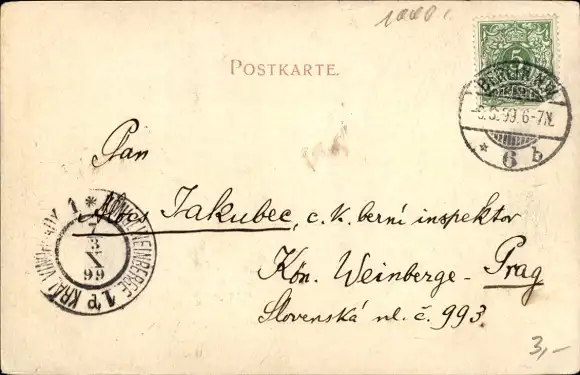 1000.
5
POSTKARTE.
BERLIN N.W.
5.3.99.6-7N.
* 6 b
Pan
Alois Jakubec, c. k. berní inspektor
Kön. Weinberge - Prag
Slovenská ul. č. 993
KÖNIGL. WEINBERGE 1
KRÁL. VINOHRADY 1
7
3
X
99
3,-